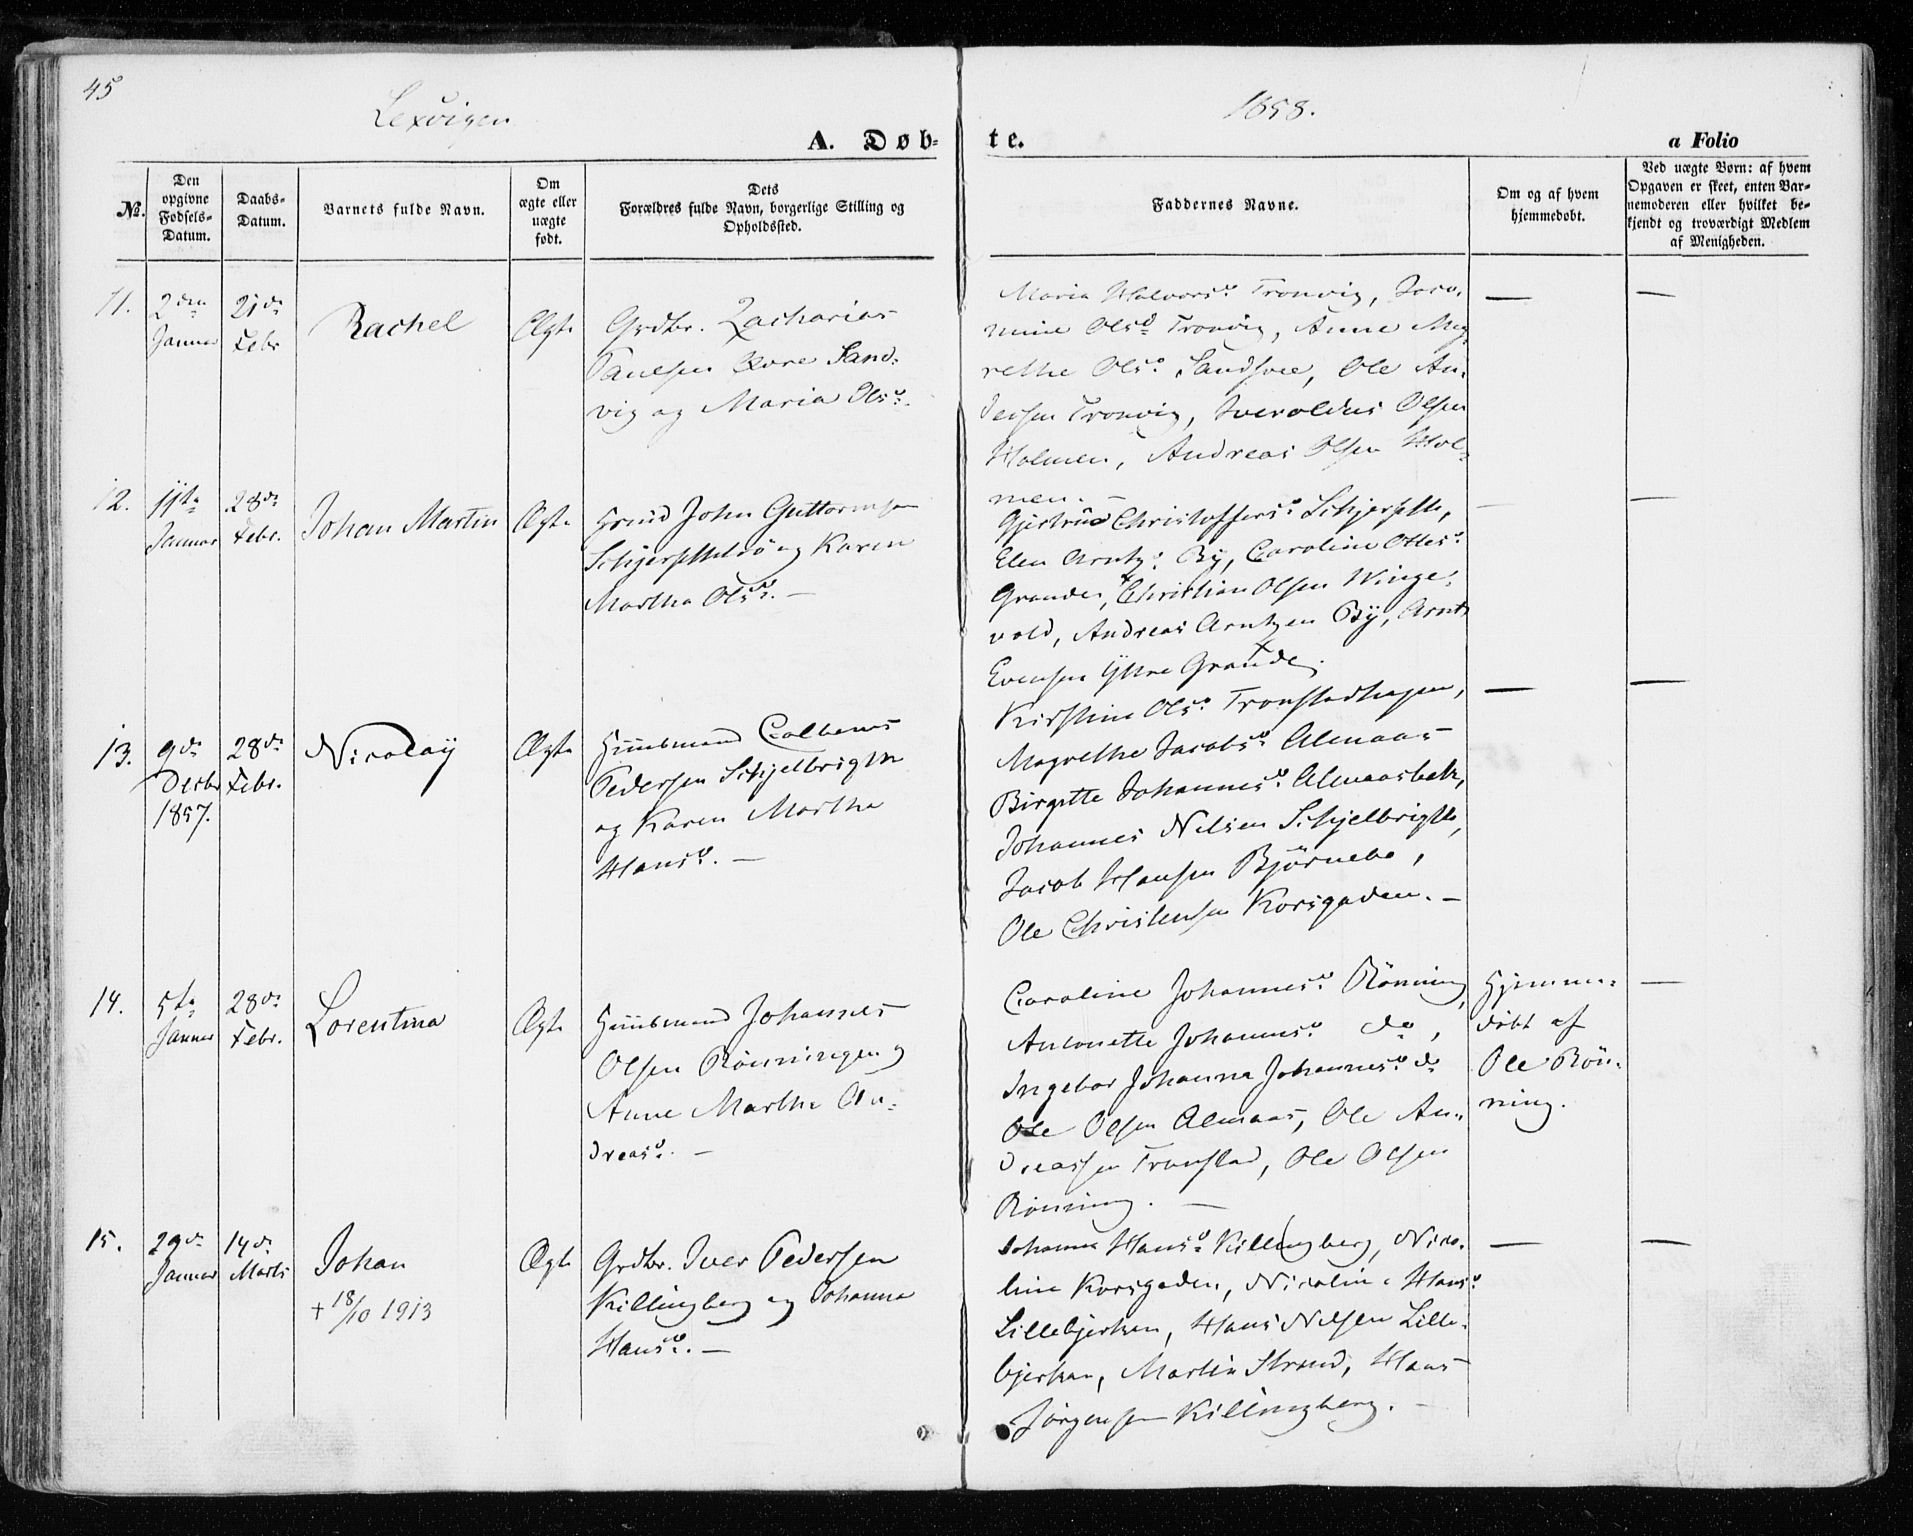 45
Lexvigen
1858.
A. Døb-
te.
a Folio
No.
Den opgivne Fødsels-Datum.
Daabs-Datum.
Barnets fulde Navn.
Om ægte eller uægte født.
Dets Forældres fulde Navn, borgerlige Stilling og Opholdssted.
Faddernes Navne.
Om og af hvem hjemmedøbt.
Ved uægte Børn: af hvem Opgaven er skeet, enten Barnemoderen eller hvilket bekjendt og troværdigt Medlem af Menigheden.
11.
2den
Januar
21de
Febr
Rachel
Ægte
Grdbr. Zacharias
Paulsen Øvre Sand-
vig og Maria Olsd.
Maria Halvorsd. Tronvig,
mine Olsd. Tronvig, Anne Mag-
rethe Olsd. Ole An-
dersen Tronvig, Olsen
Holmen, Andreas Olsen Hol-
men. —
—
—
12.
11te
Januar
28de
Febr.
Johan Martin
Ægte
John Guttormsen
og Karen
Martha Olsd. —
Christoffersd.
Elen Arntzd. By, Caroline Ottesd.
Grande, Christian Olsen Winge-
vold, Andreas Arntzen By, Arnt
Evensen Yttre Grande.
—
—
13.
9de
Decbr
1857.
28de
Febr.
Nicolaÿ
Ægte
Huusmand
Pedersen Schjelbrigtn
og Karen Martha
Hansd. —
Kirstine Olsd. Tronstadhagen,
Magrethe Jacobsd. Almaas
Birgitte Johannesd. Almaasbak,
Johannes Nelsen Schjelbrigtn,
Jacob Hansen Bjørnebo,
Ole Christensen Korsgaden. —
—
—
14.
5te
Januar
28de
Febr.
Lorentina
Ægte
Huusmand Johannes
Olsen Rönningen og
Anne Martha An-
dreasd. —
Caroline Johannesd. Rönning,
Antonette Johannesd. do,
Ingebor Johanna Johannesd. do
Ole Olsen Almaas, Ole An-
dreassen Tronstad, Ole Olsen
Rönning. —
Hjemme-
døbt af
Ole Rön-
ning.
—
15.
29de
Januar
14de
Marts
Johan
+ 18/10 1913
Ægte
Grdbr. Iver Pedersen
Killingberg og Johanna
Hansd. —
Johanna Hansd. Killingberg, Nico-
line Korsgaden, Nicoline Hansd.
Lillebjerken, Hans Nelsen Lille-
bjerken, Martin Strand, Hans
Jörgensen Killingberg. —
—
—